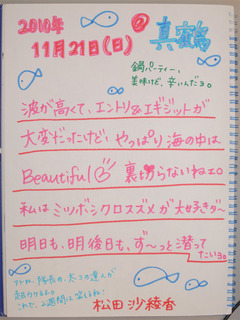 2010年
11月21日(日)
@
真鶴
鍋パーティー、
美味けど、辛いんだョ。
波が高くて、エントリ&エギジットが
大変だったけど、やっぱり海の中は
Beautiful 裏切らないねェ。
私はミツボシクロスズメが大好きダ〜
明日も、明後日も、ず〜っと潜って
たいョ。
隊長の、太コの達人が
これで、2週間は笑えるね!
松田 沙綾香